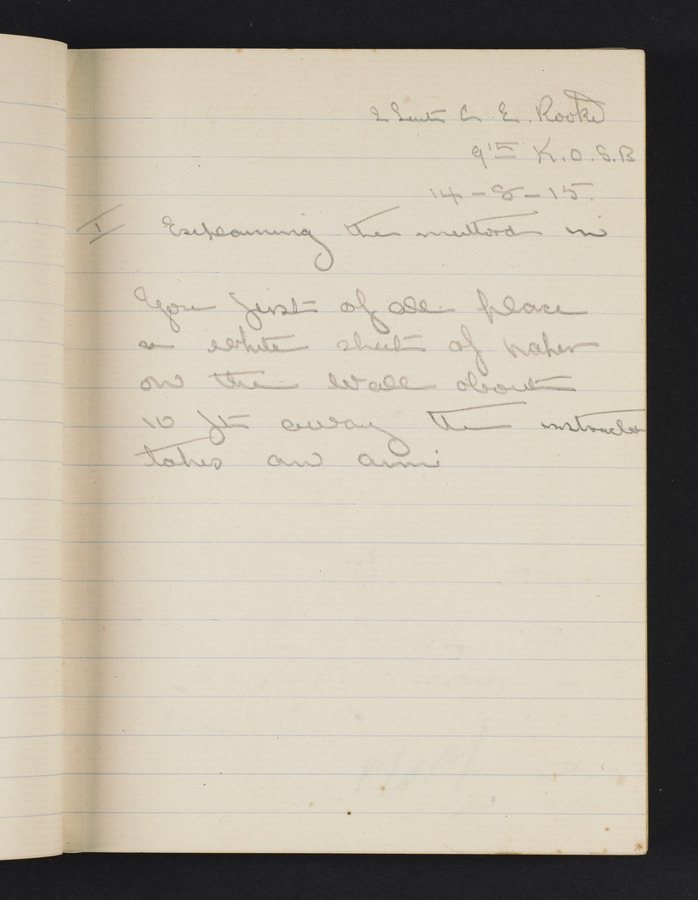 2 Lieut C. E. Rooke
9th K.O.S.B
14-8-15.
1 Explaining the method in
You first of all place
a white sheet of paper
on the wall about
10 ft away the instructor
takes an aim